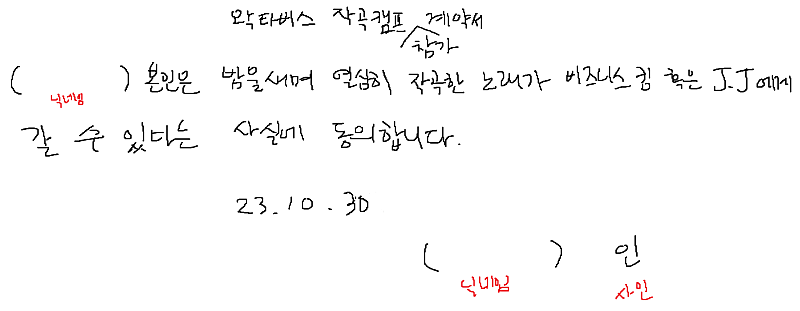 왁타버스 작곡캠프 참가 계약서
( 닉네임 ) 본인은 밤을새며 열심히 작곡한 노래가 비즈니스킴 혹은 J.J에게
갈 수 있다는 사실에 동의합니다.
23.10.30
( 닉네임 ) 인
사인